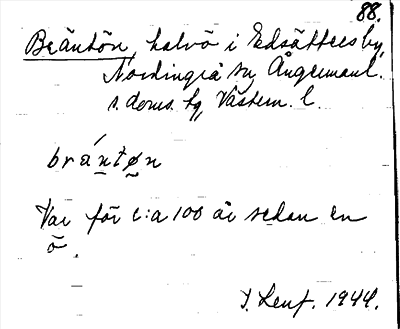 88.
Bräntön, halvö i Edsätters by,
Nordingrå sn, Ångermanl.
s. doms. hg, Västern. l.
brántøn
Var för c:a 100 år sedan en
ö.
J. Leuf. 1944.